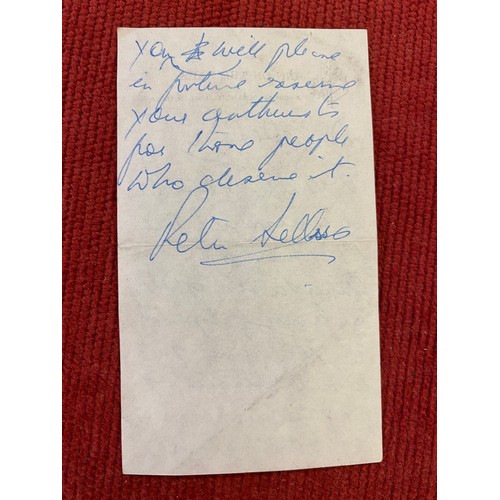 you will please
in future reserve
your outbursts
for those people
who deserve it.
Peter Sellers